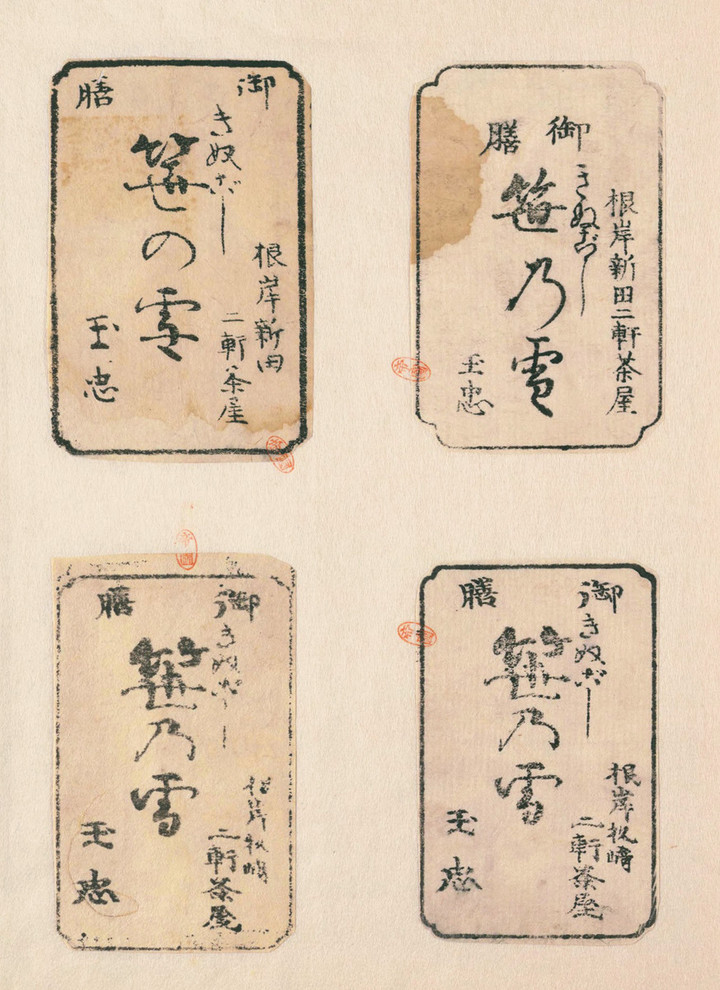 御膳
根岸新田二軒茶屋
きぬごし
笹乃雪
玉忠
御膳
根岸新田
二軒茶屋
き奴ごし
笹の雪
玉忠
御膳
根岸
二軒茶屋
き奴ごし
笹乃雪
玉忠
御膳
根岸
二軒茶屋
き奴ごし
笹乃雪
玉忠